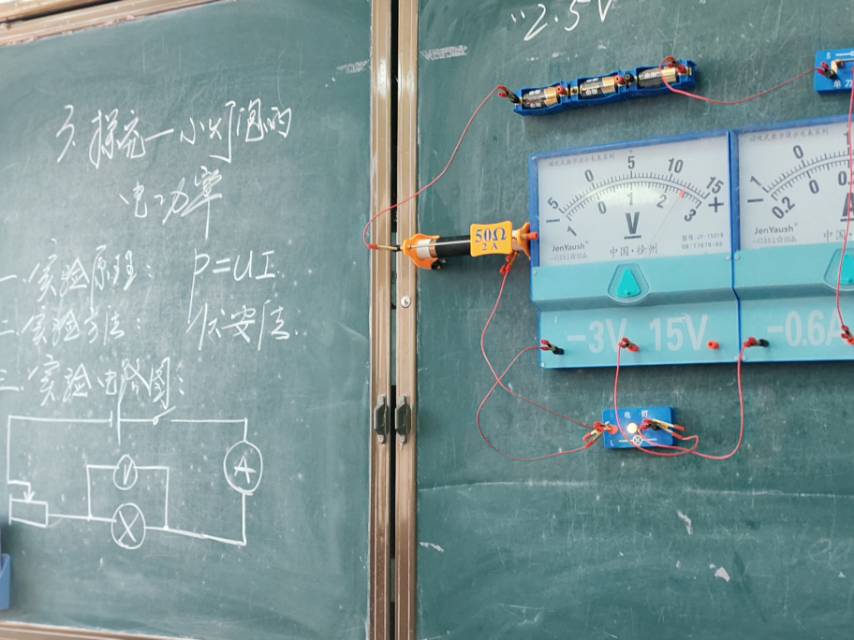 3.探究一小灯泡的
电功率
一.实验原理： P=UI
二.实验方法： 伏安法.
三.实验电路图：
V
A
"2.5V
50Ω
2A
-5 0 5 10 15
-1 0 1 2 3
+
V
JenYaush
中国·徐州
-3V 15V
-1 0
0.2 0
A
JenYaush
中国
-0.6A
电灯
单刀